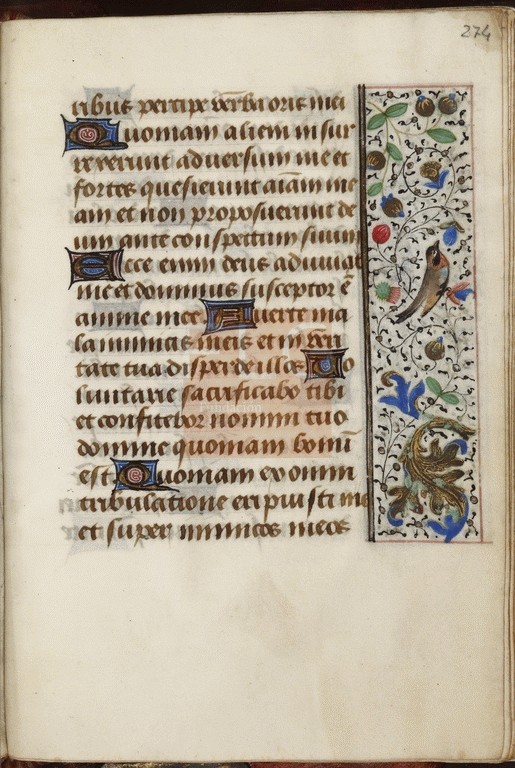 274
ribus percipe verba oris mei
Quoniam alieni insur
rexerunt adversum me et
fortes quesierunt aīam me
am et non proposuerunt de
um ante conspectum suum
Ecce enim deus adiuvat
me et dominus susceptor ē
anime mee Averte ma
la inimicis meis et in veri
tate tua disperde illos Vo
luntarie sacrificabo tibi
et confitebor nomini tuo
domine quoniam bonū
est Quoniam ex omni
tribulatione eripuisti me
et super inimicos meos
Fundación